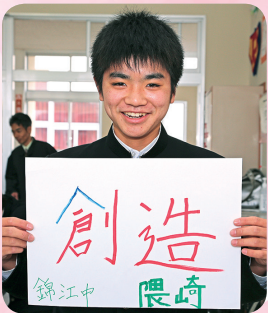 創造
錦江中 隈崎